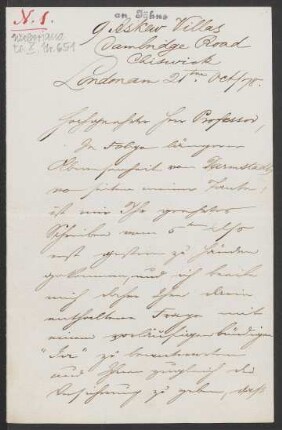 N. 1.
an Böhm
9 Askew Villas
Cambridge Road
Chiswick
London am 21ten Oct/78.
Hochgeehrter Herr Professor,
In Folge längerer
Abwesenheit von Darmstadt
von Seiten meiner Tante,
ist mir Ihr geehrtes
Schreiben vom 5ten d/Mo
erst gestern zu Händen
gekommen, und ich beeile
mich daher Ihre darin
enthaltene Frage mit
einem vorläufigen bündigen
"Ja" zu beantworten
und Ihnen zugleich die
Versicherung zu geben, daß